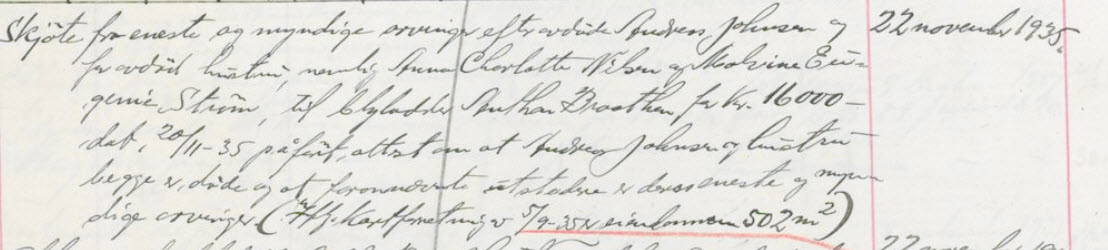 Skjöte fra eneste og myndige arvinger efter avdöde Andreas Johnsen og 22 november 1935.
for avdöd hustru, nemlig Anna Charlotte Nilsen og Malvine Eu-
genie Ström, til Anthon Braathen for Kr. 16000-
dat. 20/11-35 påfört attest om at Andreas Johnsen og hustru
begge er döde og at forannevnte utstedere er deres eneste og myn-
dige arvinger (Iflg. Kartforretning av 5/9-35 er eiendommen 502 m²)
22 november